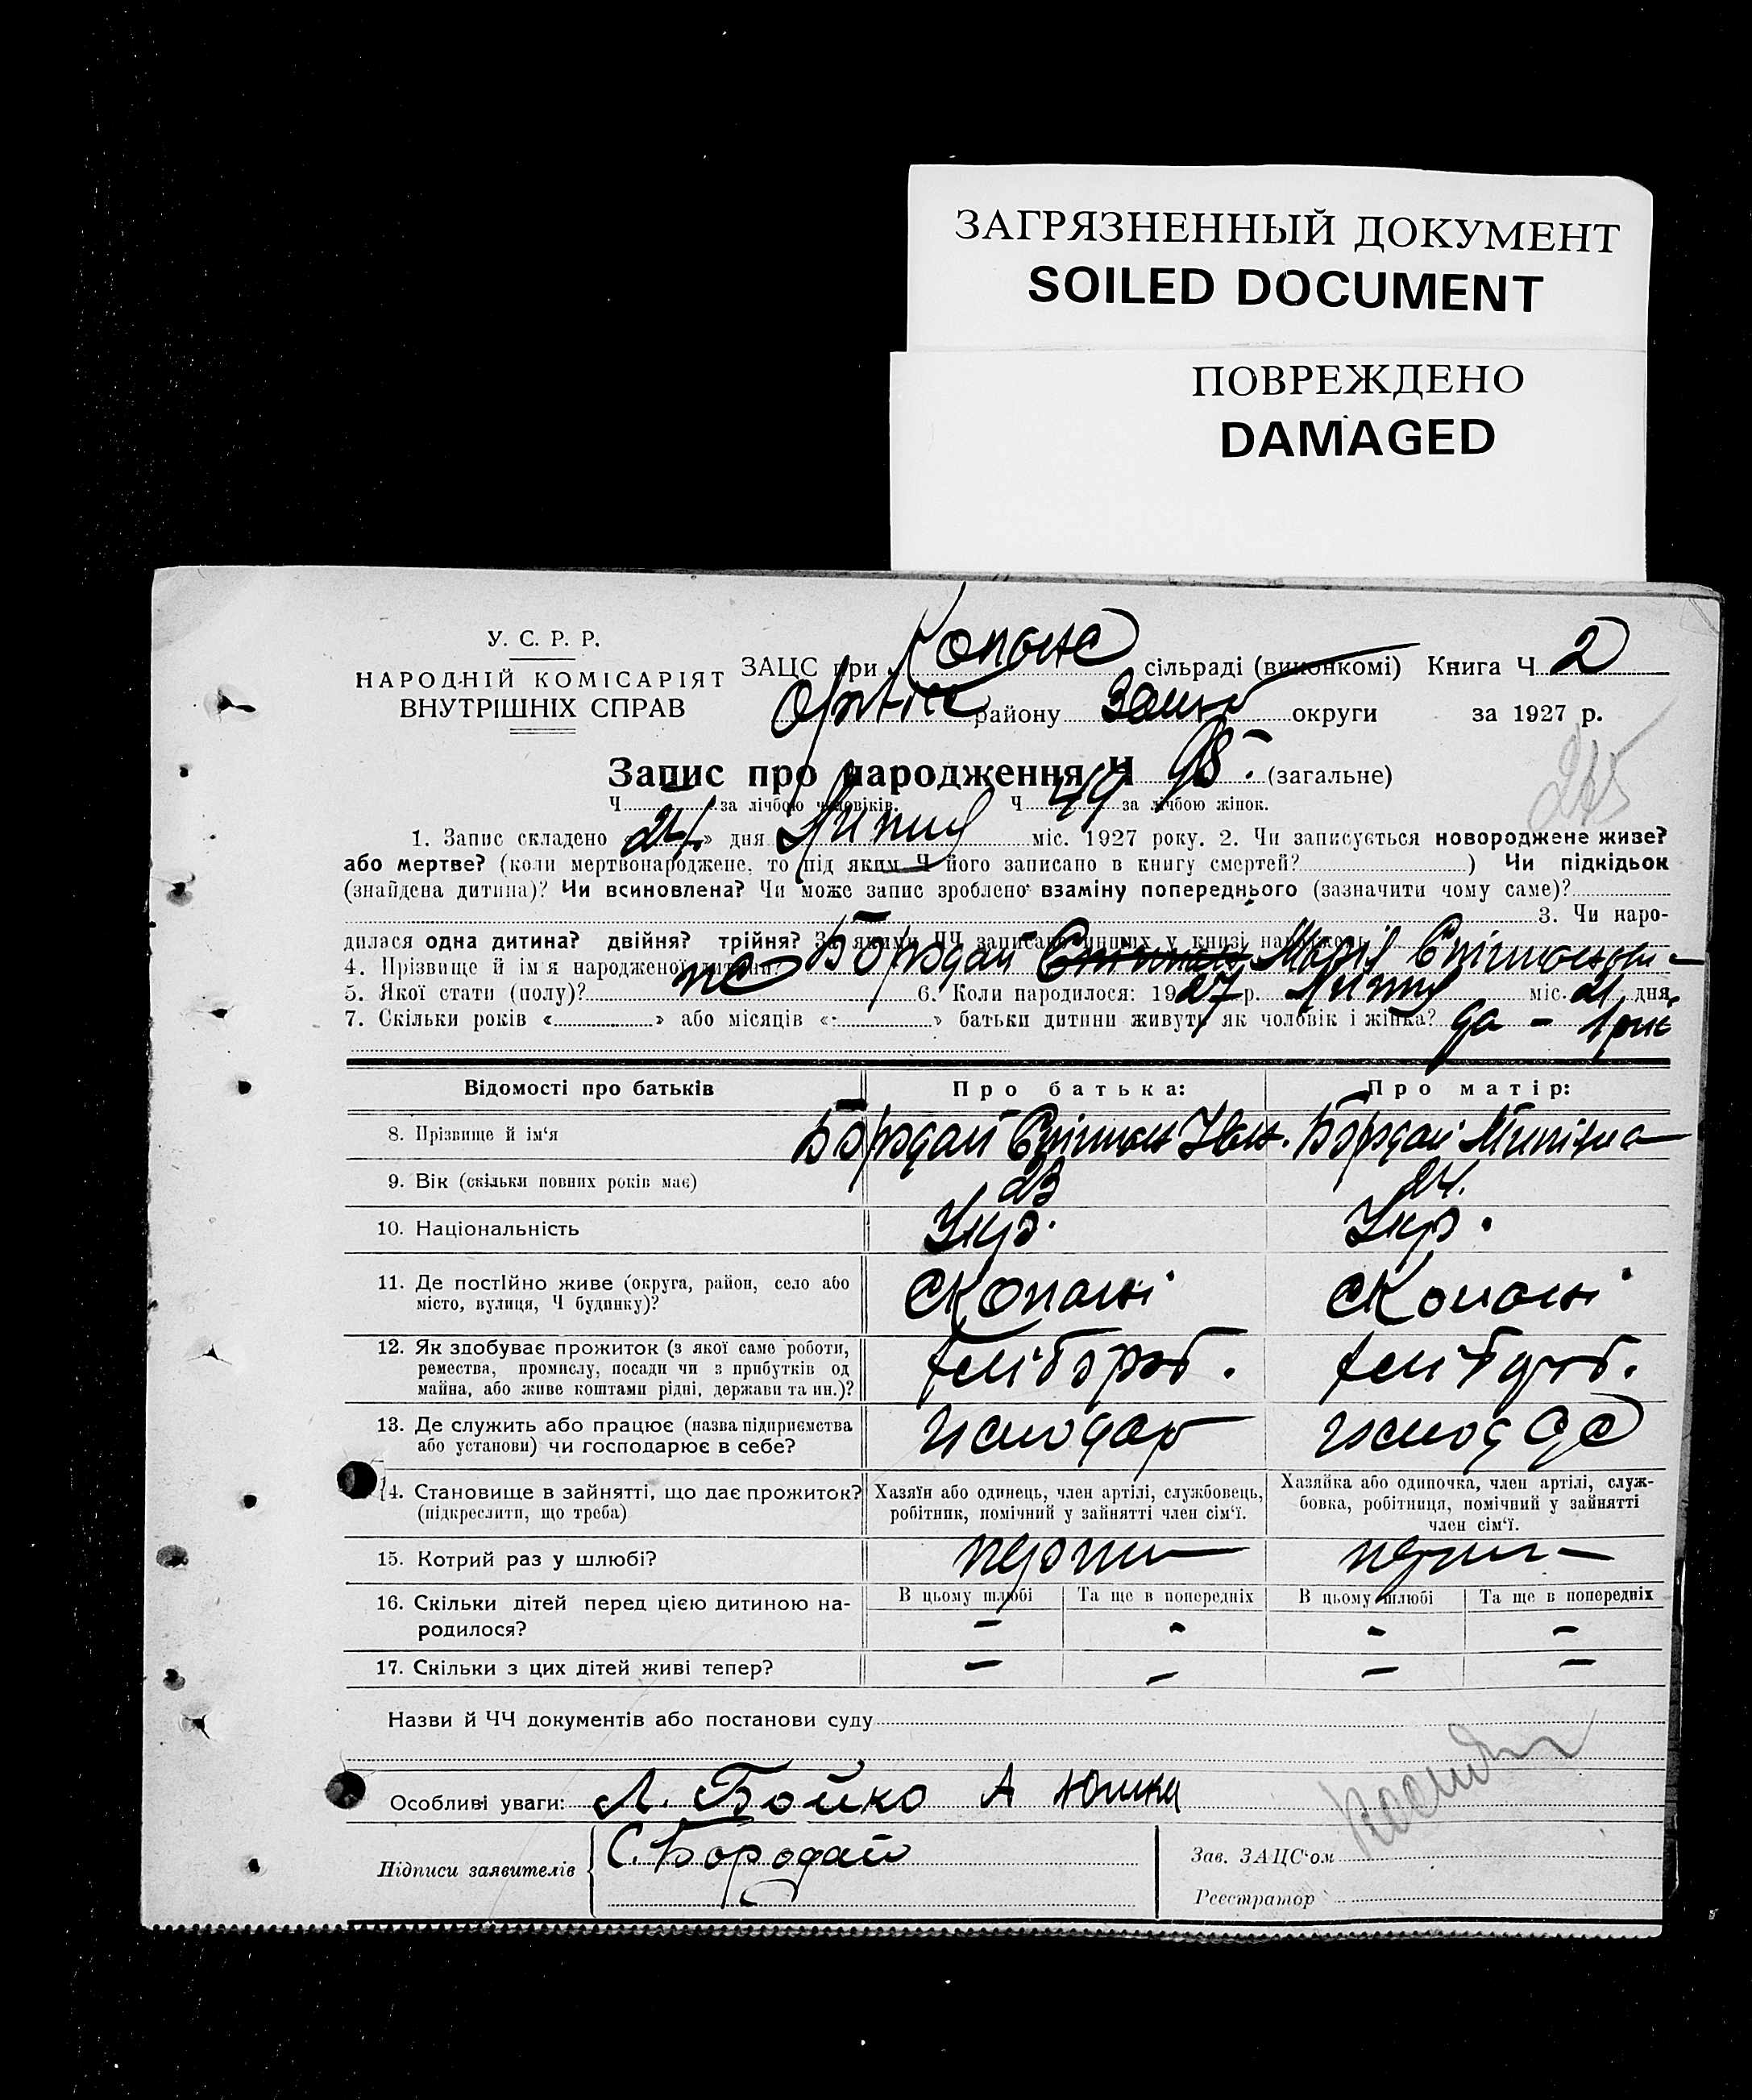 ЗАГРЯЗНЕННЫЙ ДОКУМЕНТ
SOILED DOCUMENT
ПОВРЕЖДЕНО
DAMAGED
У. С. Р. Р.
НАРОДНІЙ КОМІСАРІЯТ
ВНУТРІШНІХ СПРАВ
ЗАЦС при сільраді (виконкомі) Книга Ч. 2
району округи за 1927 р.
Запис про народження Ч 98. (загальне)
265
Ч. за лічбою чоловіків. Ч 49 за лічбою жінок.
1. Запис складено «24» дня Липня міс. 1927 року. 2. Чи записується новороджене живе?
або мертве? (коли мертвонароджене, то під яким Ч його записано в книгу смертей?) Чи підкідьок
(знайдена дитина)? Чи всиновлена? Чи може запис зроблено взаміну попереднього (зазначити чому саме)?
3. Чи наро-
дилася одна дитина? двійня? трійня? За якими ЧЧ записано инших у книзі народжень
4. Прізвище й ім'я народженої дитини? Бородай Марія
5. Якої стати (полу)? 6. Коли народилося: 1927 р. Липня міс. 21 дня.
7. Скільки років «» або місяців «» батьки дитини живуть як чоловік і жінка? да - 1 рік
Відомості про батьків Про батька: Про матір:
8. Прізвище й ім'я Бородай Бородай
9. Вік (скільки повних років має) 23 24.
10. Національність Укр. Укр.
11. Де постійно живе (округа, район, село або
місто, вулиця, Ч будинку)? с Копані с Копані
12. Як здобуває прожиток (з якої саме роботи,
ремества, промислу, посади чи з прибутків од
майна, або живе коштами рідні, держави та ин.)? хлібороб. хлібороб.
13. Де служить або працює (назва підприємства
або установи) чи господарює в себе?
14. Становище в зайнятті, що дає прожиток?
(підкреслити, що треба)
Хазяїн або одинець, член артілі, службовець,
робітник, помічний у зайнятті член сім'ї.
Хазяйка або одиночка, член артілі, служ-
бовка, робітниця, помічний у зайнятті
член сім'ї.
15. Котрий раз у шлюбі?
16. Скільки дітей перед цією дитиною на-
родилося?
В цьому шлюбі Та ще в попередніх В цьому шлюбі Та ще в попередніх
- - - -
17. Скільки з цих дітей живі тепер? - - - -
Назви й ЧЧ документів або постанови суду
Особливі уваги: Л. Бойко А Юшка
Підписи заявителів С. Бородай
Зав. ЗАЦС'ом
Реєстратор